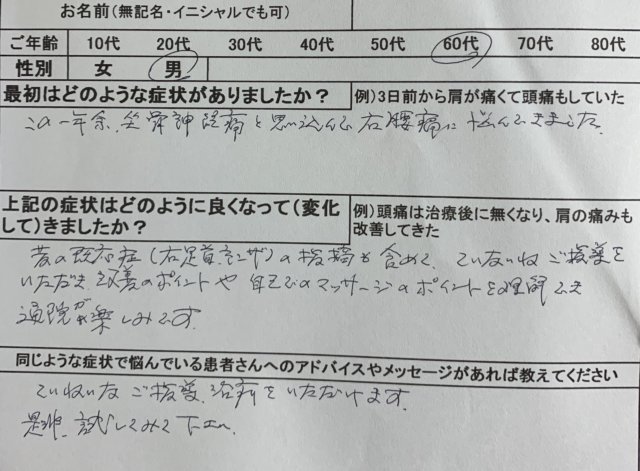 お名前(無記名・イニシャルでも可)
ご年齢 10代 20代 30代 40代 50代 60代 70代 80代
性別 女 男
最初はどのような症状がありましたか？
例)3日前から肩が痛くて頭痛もしていた
この一年余、坐骨神経痛と思い込んで右腰痛に悩んできました。
上記の症状はどのように良くなって(変化
して)きましたか？
例)頭痛は治療後に無くなり、肩の痛みも
改善してきた
昔の既応症(右足首、ヒザ)の指摘も含めて、ていねいなご指導を
いただき、改善のポイントや自宅でのマッサージのポイントを理解でき
通院が楽しみです。
同じような症状で悩んでいる患者さんへのアドバイスやメッセージがあれば教えてください
ていねいなご指導、治療をいただけます。
是非、試してみて下さい。